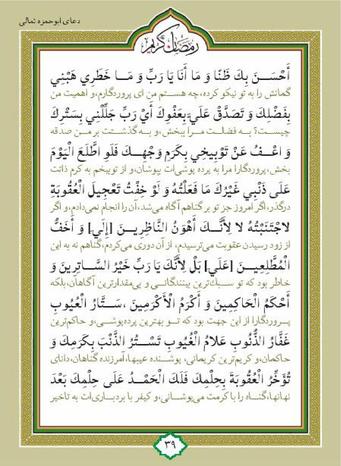 دعای ابوحمزه ثمالی
رمضان کریم
أَحْسَنَ بِكَ ظَنّاً وَ مَا أَنَا يَا رَبِّ وَ مَا خَطَرِي هَبْنِي
گمانش را به تو نیکو کرده، چه هستم من ای پروردگارم، و اهمیت من
بِفَضْلِكَ وَ تَصَدَّقْ عَلَيَّ بِعَفْوِكَ أَيْ رَبِّ جَلِّلْنِي بِسَتْرِكَ
چیست؟ به فضلت مرا ببخش، و به گذشتت بر من صدقه
وَ اعْفُ عَنْ تَوْبِيخِي بِكَرَمِ وَجْهِكَ فَلَوِ اطَّلَعَ الْيَوْمَ
بخش، پروردگارا مرا به پرده پوشی‌ات بپوشان، و از توبیخم به کرم ذاتت
عَلَى ذَنْبِي غَيْرُكَ مَا فَعَلْتُهُ وَ لَوْ خِفْتُ تَعْجِيلَ الْعُقُوبَةِ
درگذر، اگر امروز جز تو بر گناهم آگاه می‌شد، آن را انجام نمی‌دادم، و اگر
لاجْتَنَبْتُهُ لا لِأَنَّكَ أَهْوَنُ النَّاظِرِينَ [إِلَيَ] وَ أَخَفُّ
از زود رسیدن عقوبت می‌ترسیدم، از آن دوری می‌کردم، گناهم نه به این
الْمُطَّلِعِينَ [عَلَيَ] بَلْ لِأَنَّكَ يَا رَبِّ خَيْرُ السَّاتِرِينَ وَ
خاطر بود که تو سبک‌ترین بینندگانی و بی‌مقدارترین آگاهان، بلکه
أَحْكَمُ الْحَاكِمِينَ وَ أَكْرَمُ الْأَكْرَمِينَ، سَتَّارُ الْعُيُوبِ
پروردگارا از این جهت بود که تو بهترین پرده‌پوشی، و حاکم‌ترین
غَفَّارُ الذُّنُوبِ عَلامُ الْغُيُوبِ تَسْتُرُ الذَّنْبَ بِكَرَمِكَ وَ
حاکمان، و کریم‌ترین کریمانی، پوشنده عیبها، آمرزنده گناهان، دانای
تُؤَخِّرُ الْعُقُوبَةَ بِحِلْمِكَ فَلَكَ الْحَمْدُ عَلَى حِلْمِكَ بَعْدَ
نهانها، گناه را با کرمت می‌پوشانی، و کیفر با بردباری‌ات به تاخیر
۳۹